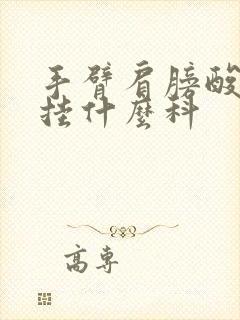 手臂肩膀酸
挂什麼科
高專